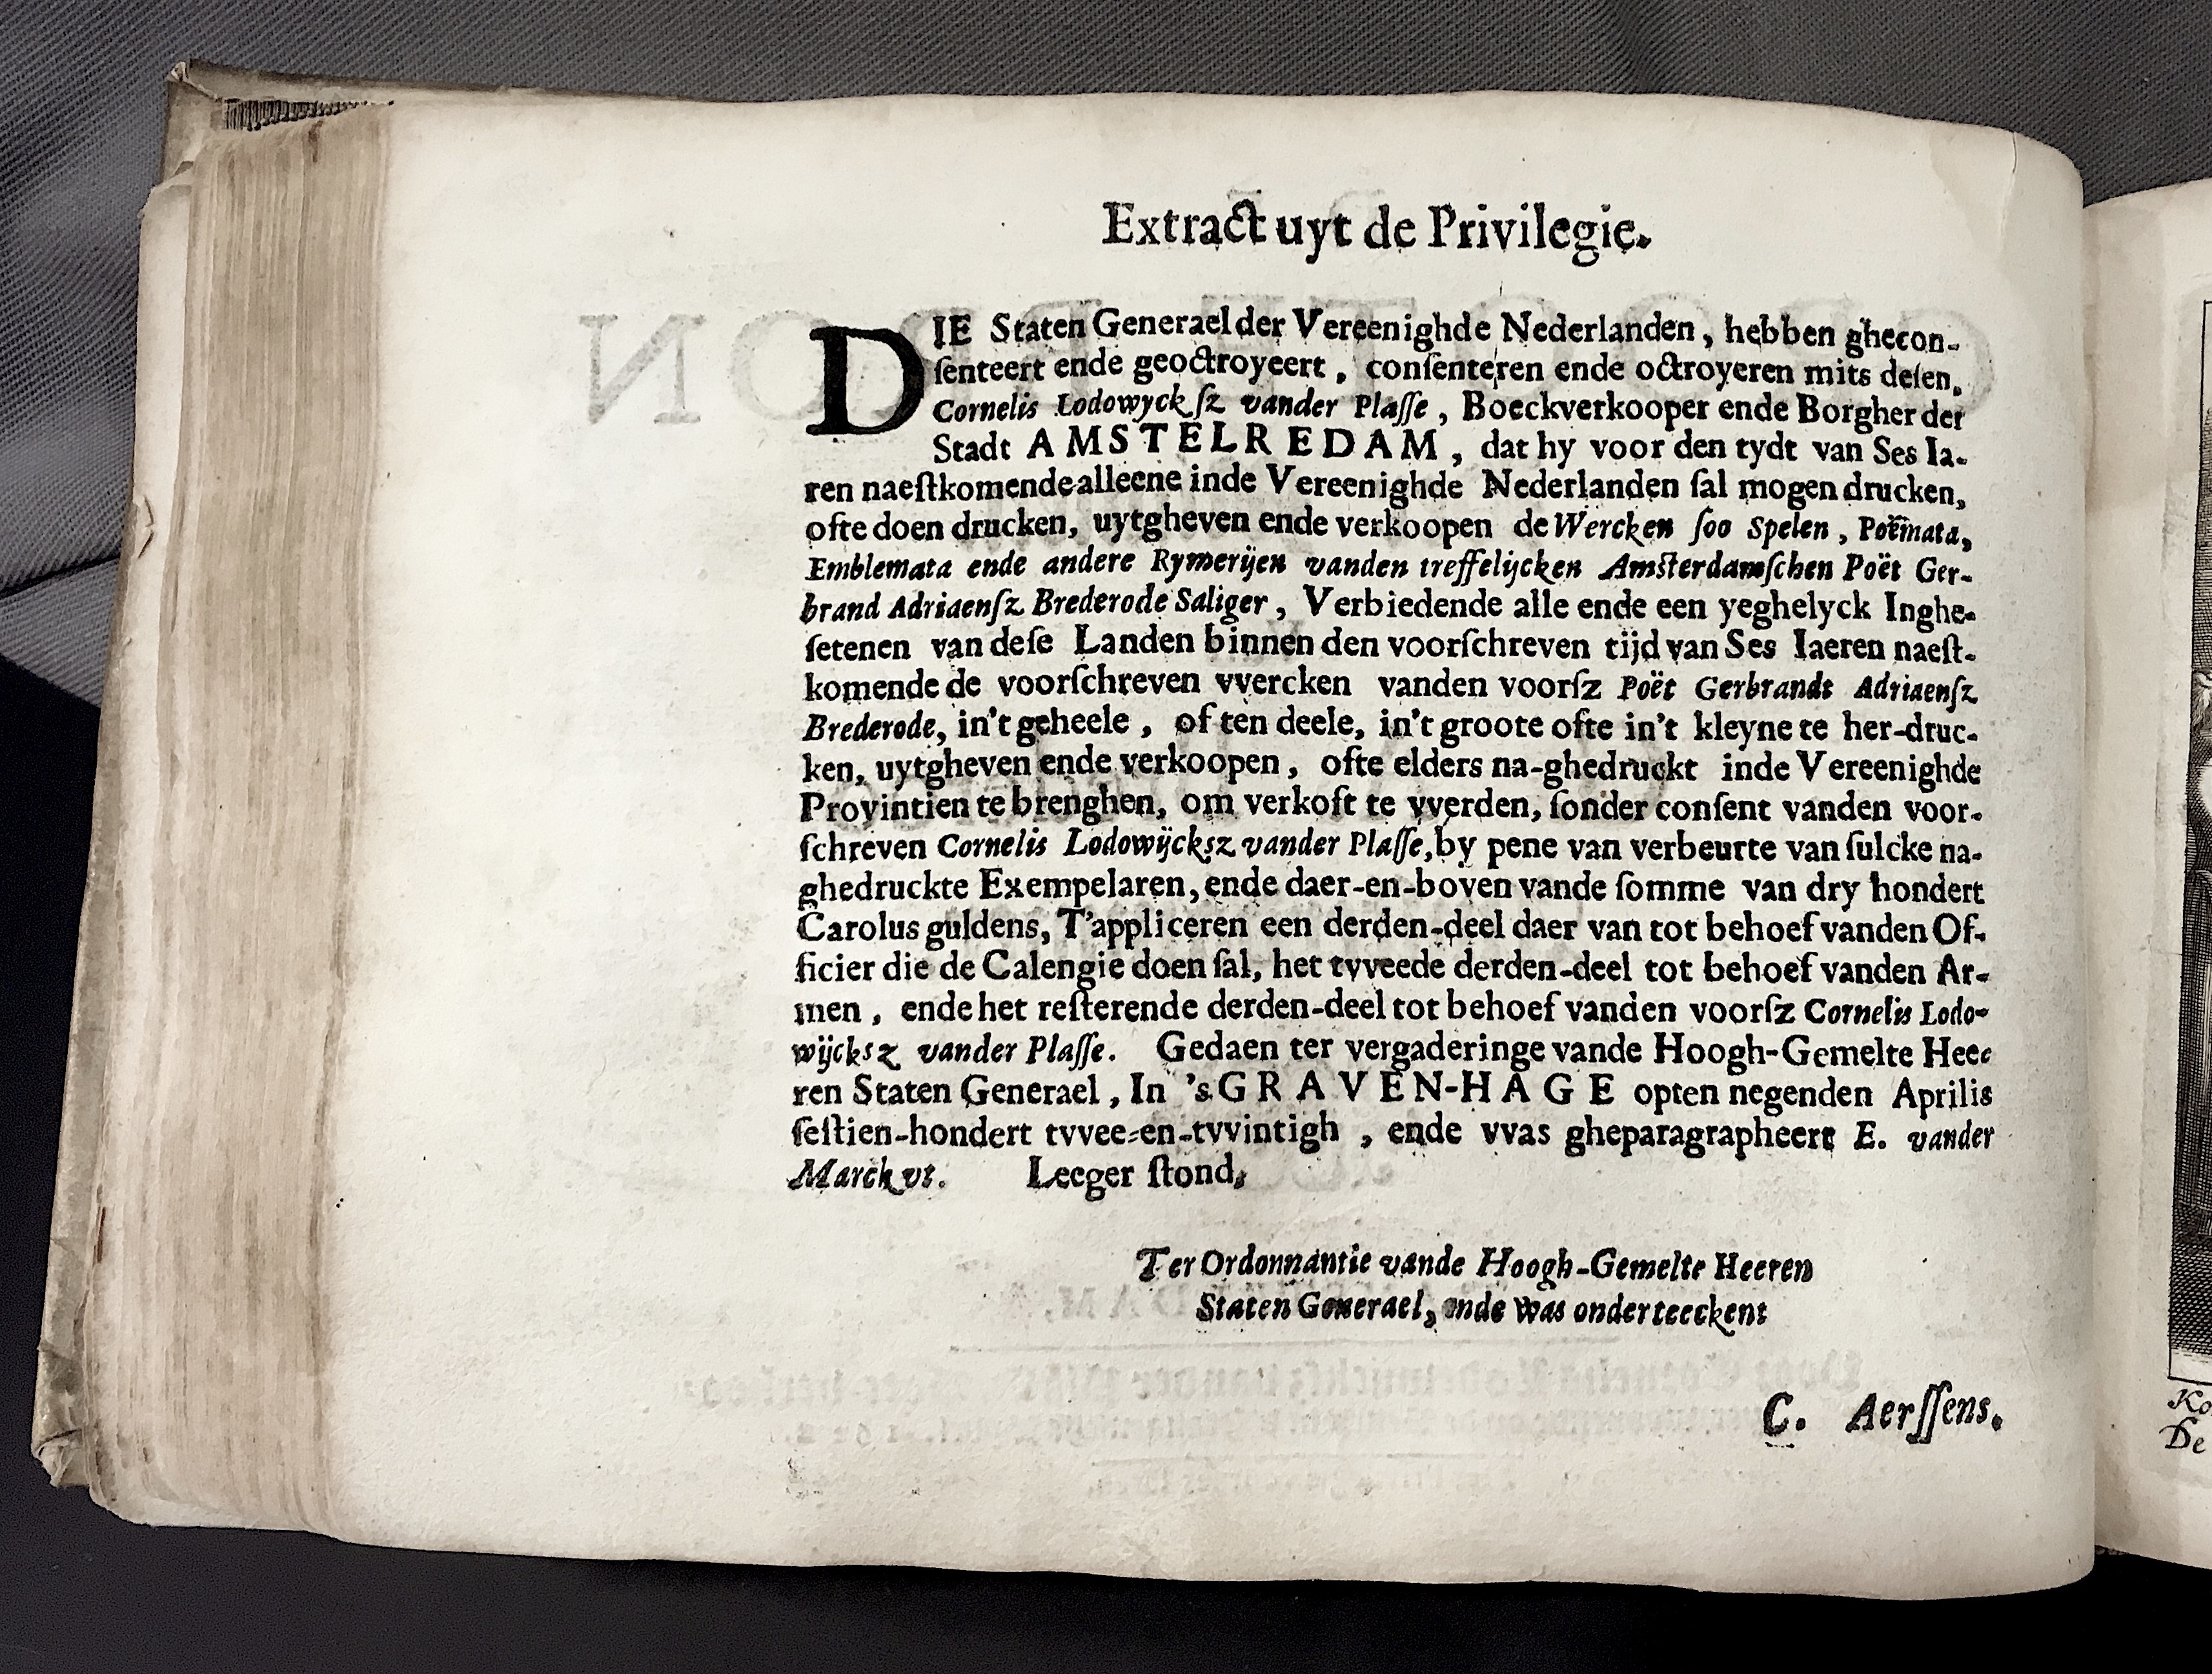 Extract uyt de Privilegie.
DIE Staten Generael der Vereenighde Nederlanden, hebben ghecon-
ſenteert ende geoctroyeert, conſenteren ende octroyeren mits deſen,
Cornelis Lodowyckſz vander Plaſſe, Boeckverkooper ende Borgher der
Stadt AMSTELREDAM, dat hy voor den tydt van Ses Ia-
ren naeſtkomende alleene inde Vereenighde Nederlanden ſal mogen drucken,
ofte doen drucken, uytgheven ende verkoopen de Wercken ſoo Spelen, Poëmata,
Emblemata ende andere Rymerijen vanden treffelijcken Amsterdamſchen Poët Ger-
brand Adriaenſz Brederode Saliger, Verbiedende alle ende een yeghelyck Inghe-
ſetenen van deſe Landen binnen den voorſchreven tijd van Ses Iaeren naeſt-
komende de voorſchreven vvercken vanden voorſz Poët Gerbrandt Adriaenſz
Brederode, in't geheele, of ten deele, in't groote ofte in't kleyne te her-druc-
ken, uytgheven ende verkoopen, ofte elders na-ghedruckt inde Vereenighde
Provintien te brenghen, om verkoft te vverden, ſonder conſent vanden voor-
ſchreven Cornelis Lodowijcksz vander Plaſſe, by pene van verbeurte van ſulcke na-
ghedruckte Exempelaren, ende daer-en-boven vande ſomme van dry hondert
Carolus guldens, T'appliceren een derden-deel daer van tot behoef vanden Of-
ficier die de Calengie doen ſal, het tvveede derden-deel tot behoef vanden Ar-
men, ende het reſterende derden-deel tot behoef vanden voorſz Cornelis Lodo-
wijcksz vander Plaſſe. Gedaen ter vergaderinge vande Hoogh-Gemelte Hee-
ren Staten Generael, In 'sGRAVEN-HAGE opten negenden Aprilis
ſeſtien-hondert tvvee-en-tvvintigh, ende vvas gheparagrapheert E. vander
Marck vt. Leeger ſtond,
Ter Ordonnantie vande Hoogh-Gemelte Heeren
Staten Generael, ende was onderteeckent
C. Aerſſens.
Ko
De